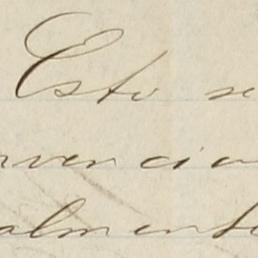 Esto se
rvencion
almente